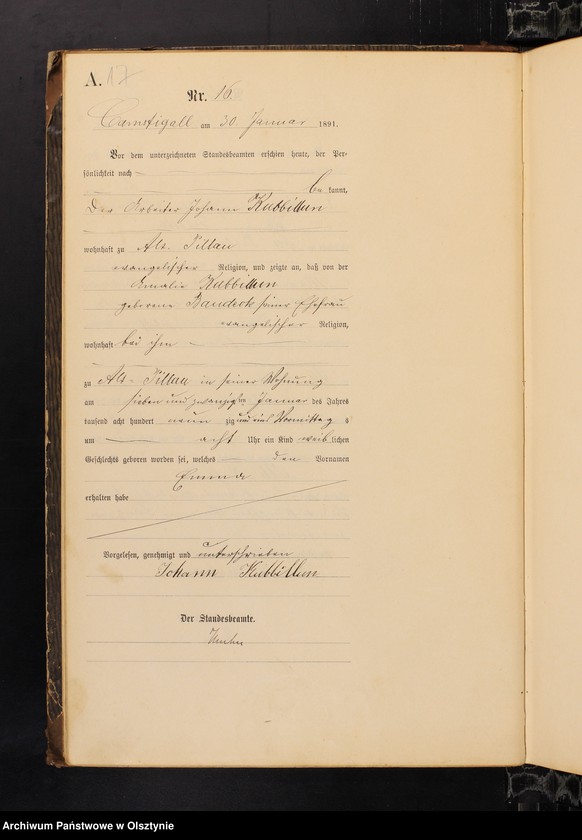 A. 17
Nr. 16.
Camstigall am 30. Januar 1891.
Vor dem unterzeichneten Standesbeamten erschien heute, der Per-
sönlichkeit nach
be kannt,
Der Arbeiter Johann Kubbillun
wohnhaft zu Alt-Pillau
evangelischer Religion, und zeigte an, daß von der
Amalie Kubbillun
geborene seiner Ehefrau
evangelischer Religion,
wohnhaft bei ihm
zu Alt-Pillau in seiner Wohnung
am sieben und zwanzigsten Januar des Jahres
tausend acht hundert neun zig und eins Vormittag s
um acht Uhr ein Kind weib lichen
Geschlechts geboren worden sei, welches den Vornamen
Emma
erhalten habe
Vorgelesen, genehmigt und unterschrieben
Johann Kubbillun
Der Standesbeamte.
Archiwum Państwowe w Olsztynie